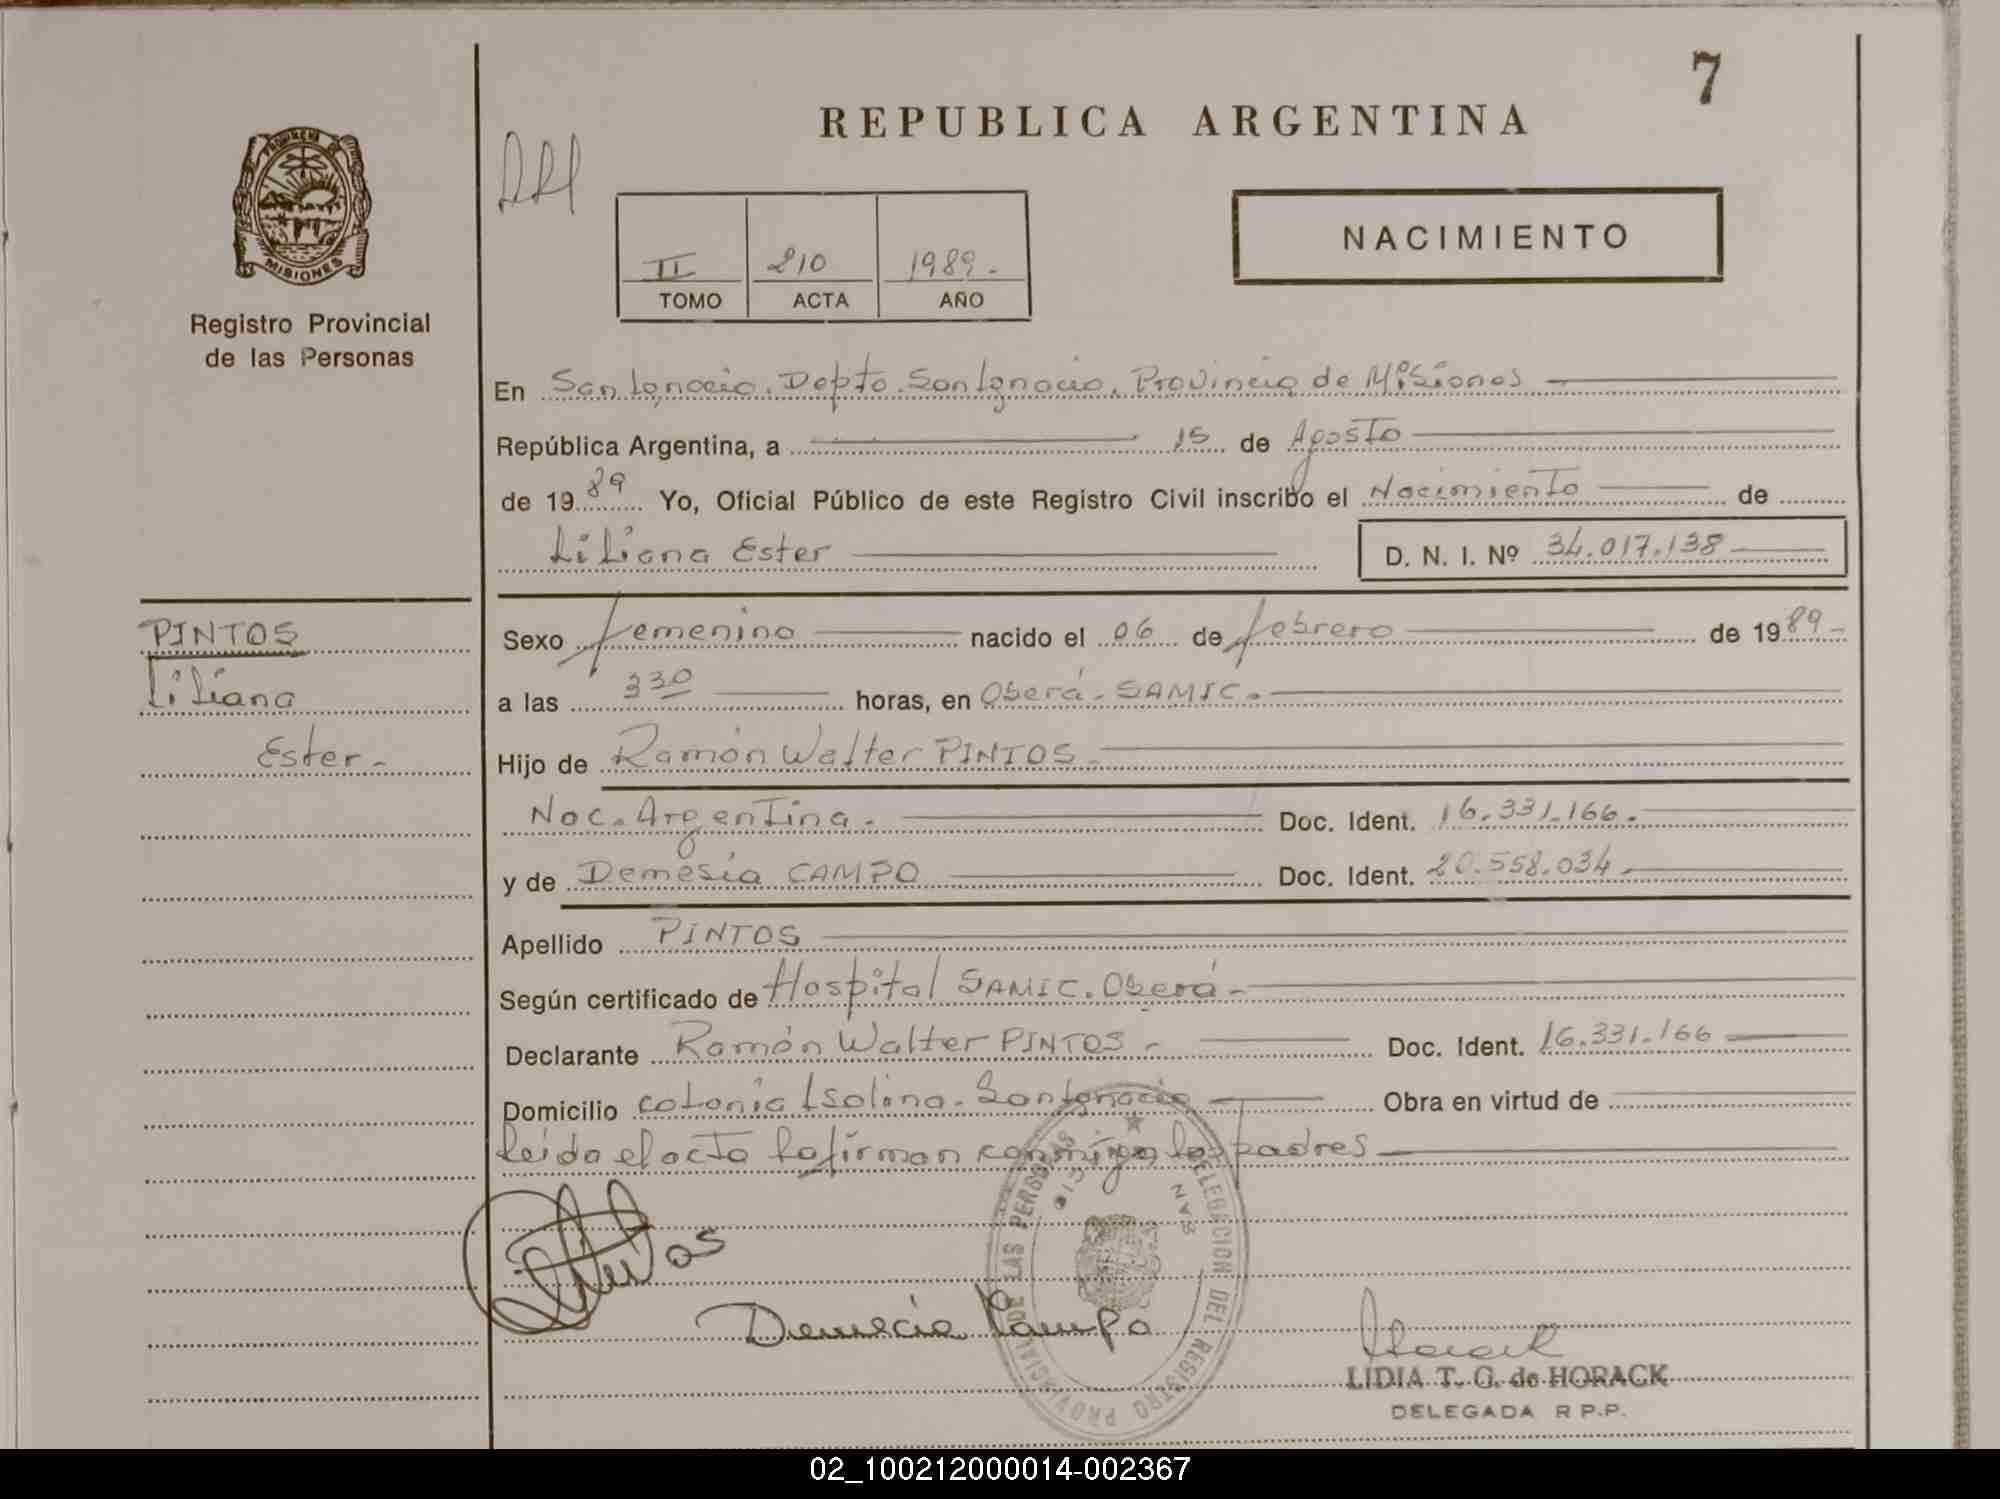 7
REPUBLICA ARGENTINA
PROVINCIA DE
MISIONES
Registro Provincial
de las Personas
NACIMIENTO
II 210 1989.-
TOMO ACTA AÑO
En San Ignacio. Depto. San Ignacio. Provincia de Misiones
República Argentina, a 15 de Agosto
de 1989 Yo, Oficial Público de este Registro Civil inscribo el Nacimiento de
Liliana Ester D. N. I. Nº 34.017.138
PINTOS
Liliana
Ester.-
Sexo femenino nacido el 06 de febrero de 1989-
a las 3 30 horas, en Oberá. SAMIC.
Hijo de Ramón Walter PINTOS.
Nac. Argentina. Doc. Ident. 16.331.166.
y de Demesia CAMPO Doc. Ident. 20.558.034
Apellido PINTOS
Según certificado de Hospital SAMIC. Oberá-
Declarante Ramón Walter PINTOS.- Doc. Ident. 16.331.166
Domicilio colonia Isolina. San Ignacio Obra en virtud de
Leida el acta la firman conmigo los padres
DELEGACION DEL REGISTRO PROVINCIAL DE LAS PERSONAS
SAN
Demecia Campo
Horack
LIDIA T. G. de HORACK
DELEGADA R P.P.
02_100212000014-002367